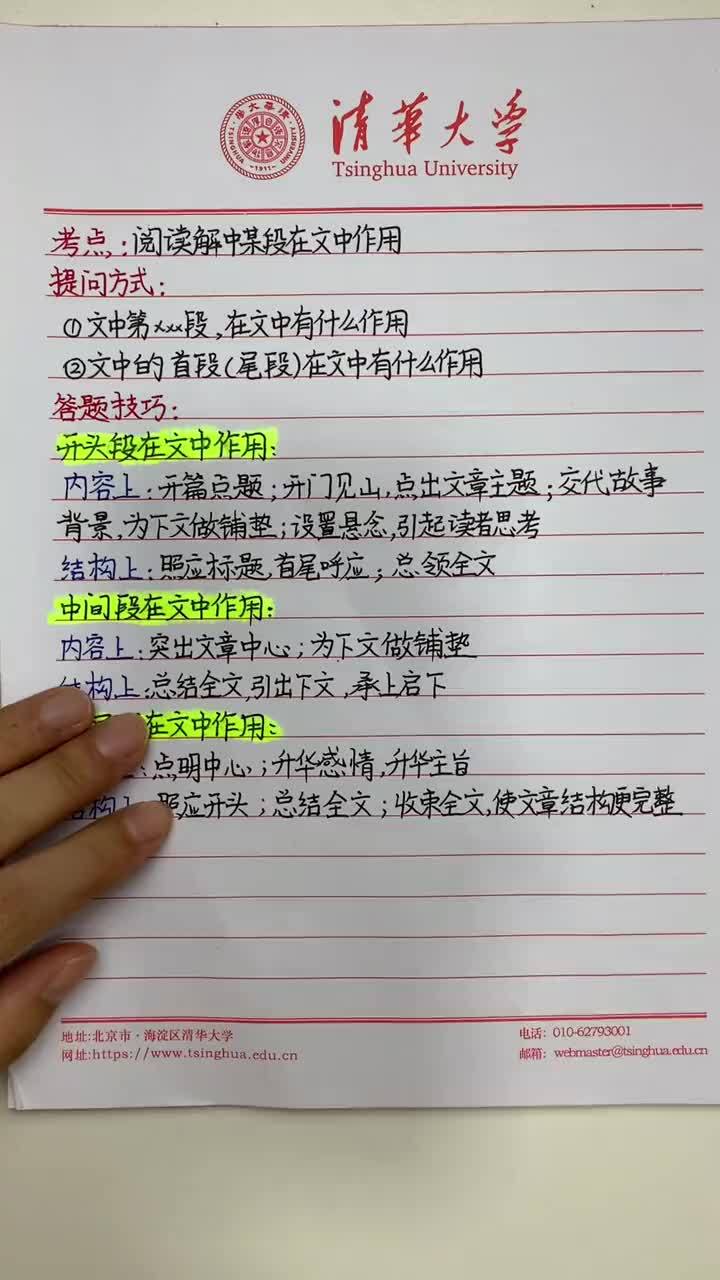 清华大学
Tsinghua University
考点：阅读解中某段在文中作用
提问方式：
①文中第xxx段，在文中有什么作用
②文中的首段（尾段）在文中有什么作用
答题技巧：
开头段在文中作用：
内容上：开篇点题；开门见山，点出文章主题；交代故事
背景，为下文做铺垫；设置悬念，引起读者思考
结构上：照应标题，首尾呼应；总领全文
中间段在文中作用：
内容上：突出文章中心；为下文做铺垫
结构上：总结全文，引出下文，承上启下
在文中作用：
：点明中心；升华感情，升华主旨
结构上：照应开头；总结全文；收束全文，使文章结构更完整
地址:北京市·海淀区清华大学
电话：010-62793001
网址:https://www.tsinghua.edu.cn
邮箱：webmaster@tsinghua.edu.cn